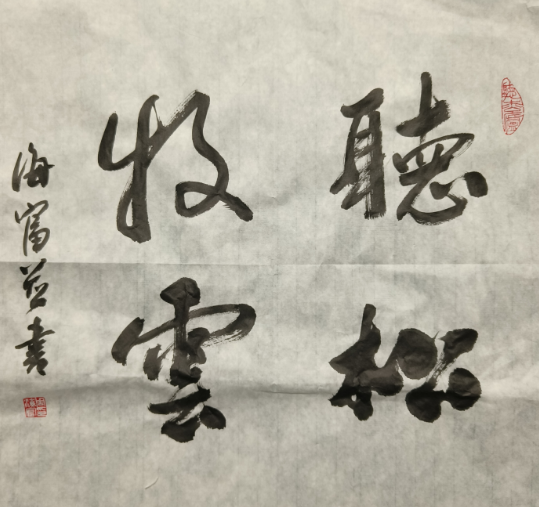 聽松
牧雲
海富益書